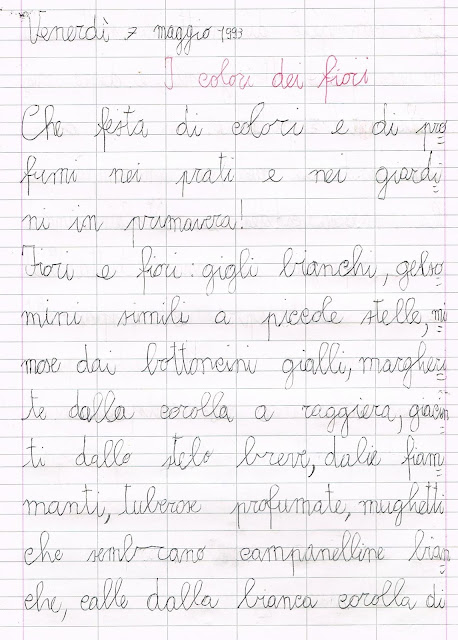 Venerdì 7 maggio 1993
I colori dei fiori
Che festa di colori e di pro
fumi nei prati e nei giardi
ni in primavera!
Fiori e fiori: gigli bianchi, gelso
mini simili a piccole stelle, mi
mose dai bottoncini gialli, margheri
te dalla corolla a raggiera, giacin
ti dallo stelo breve, dalie fiam
manti, tuberose profumate, mughetti
che sembrano campanelline bian
che, calle dalla bianca corolla di